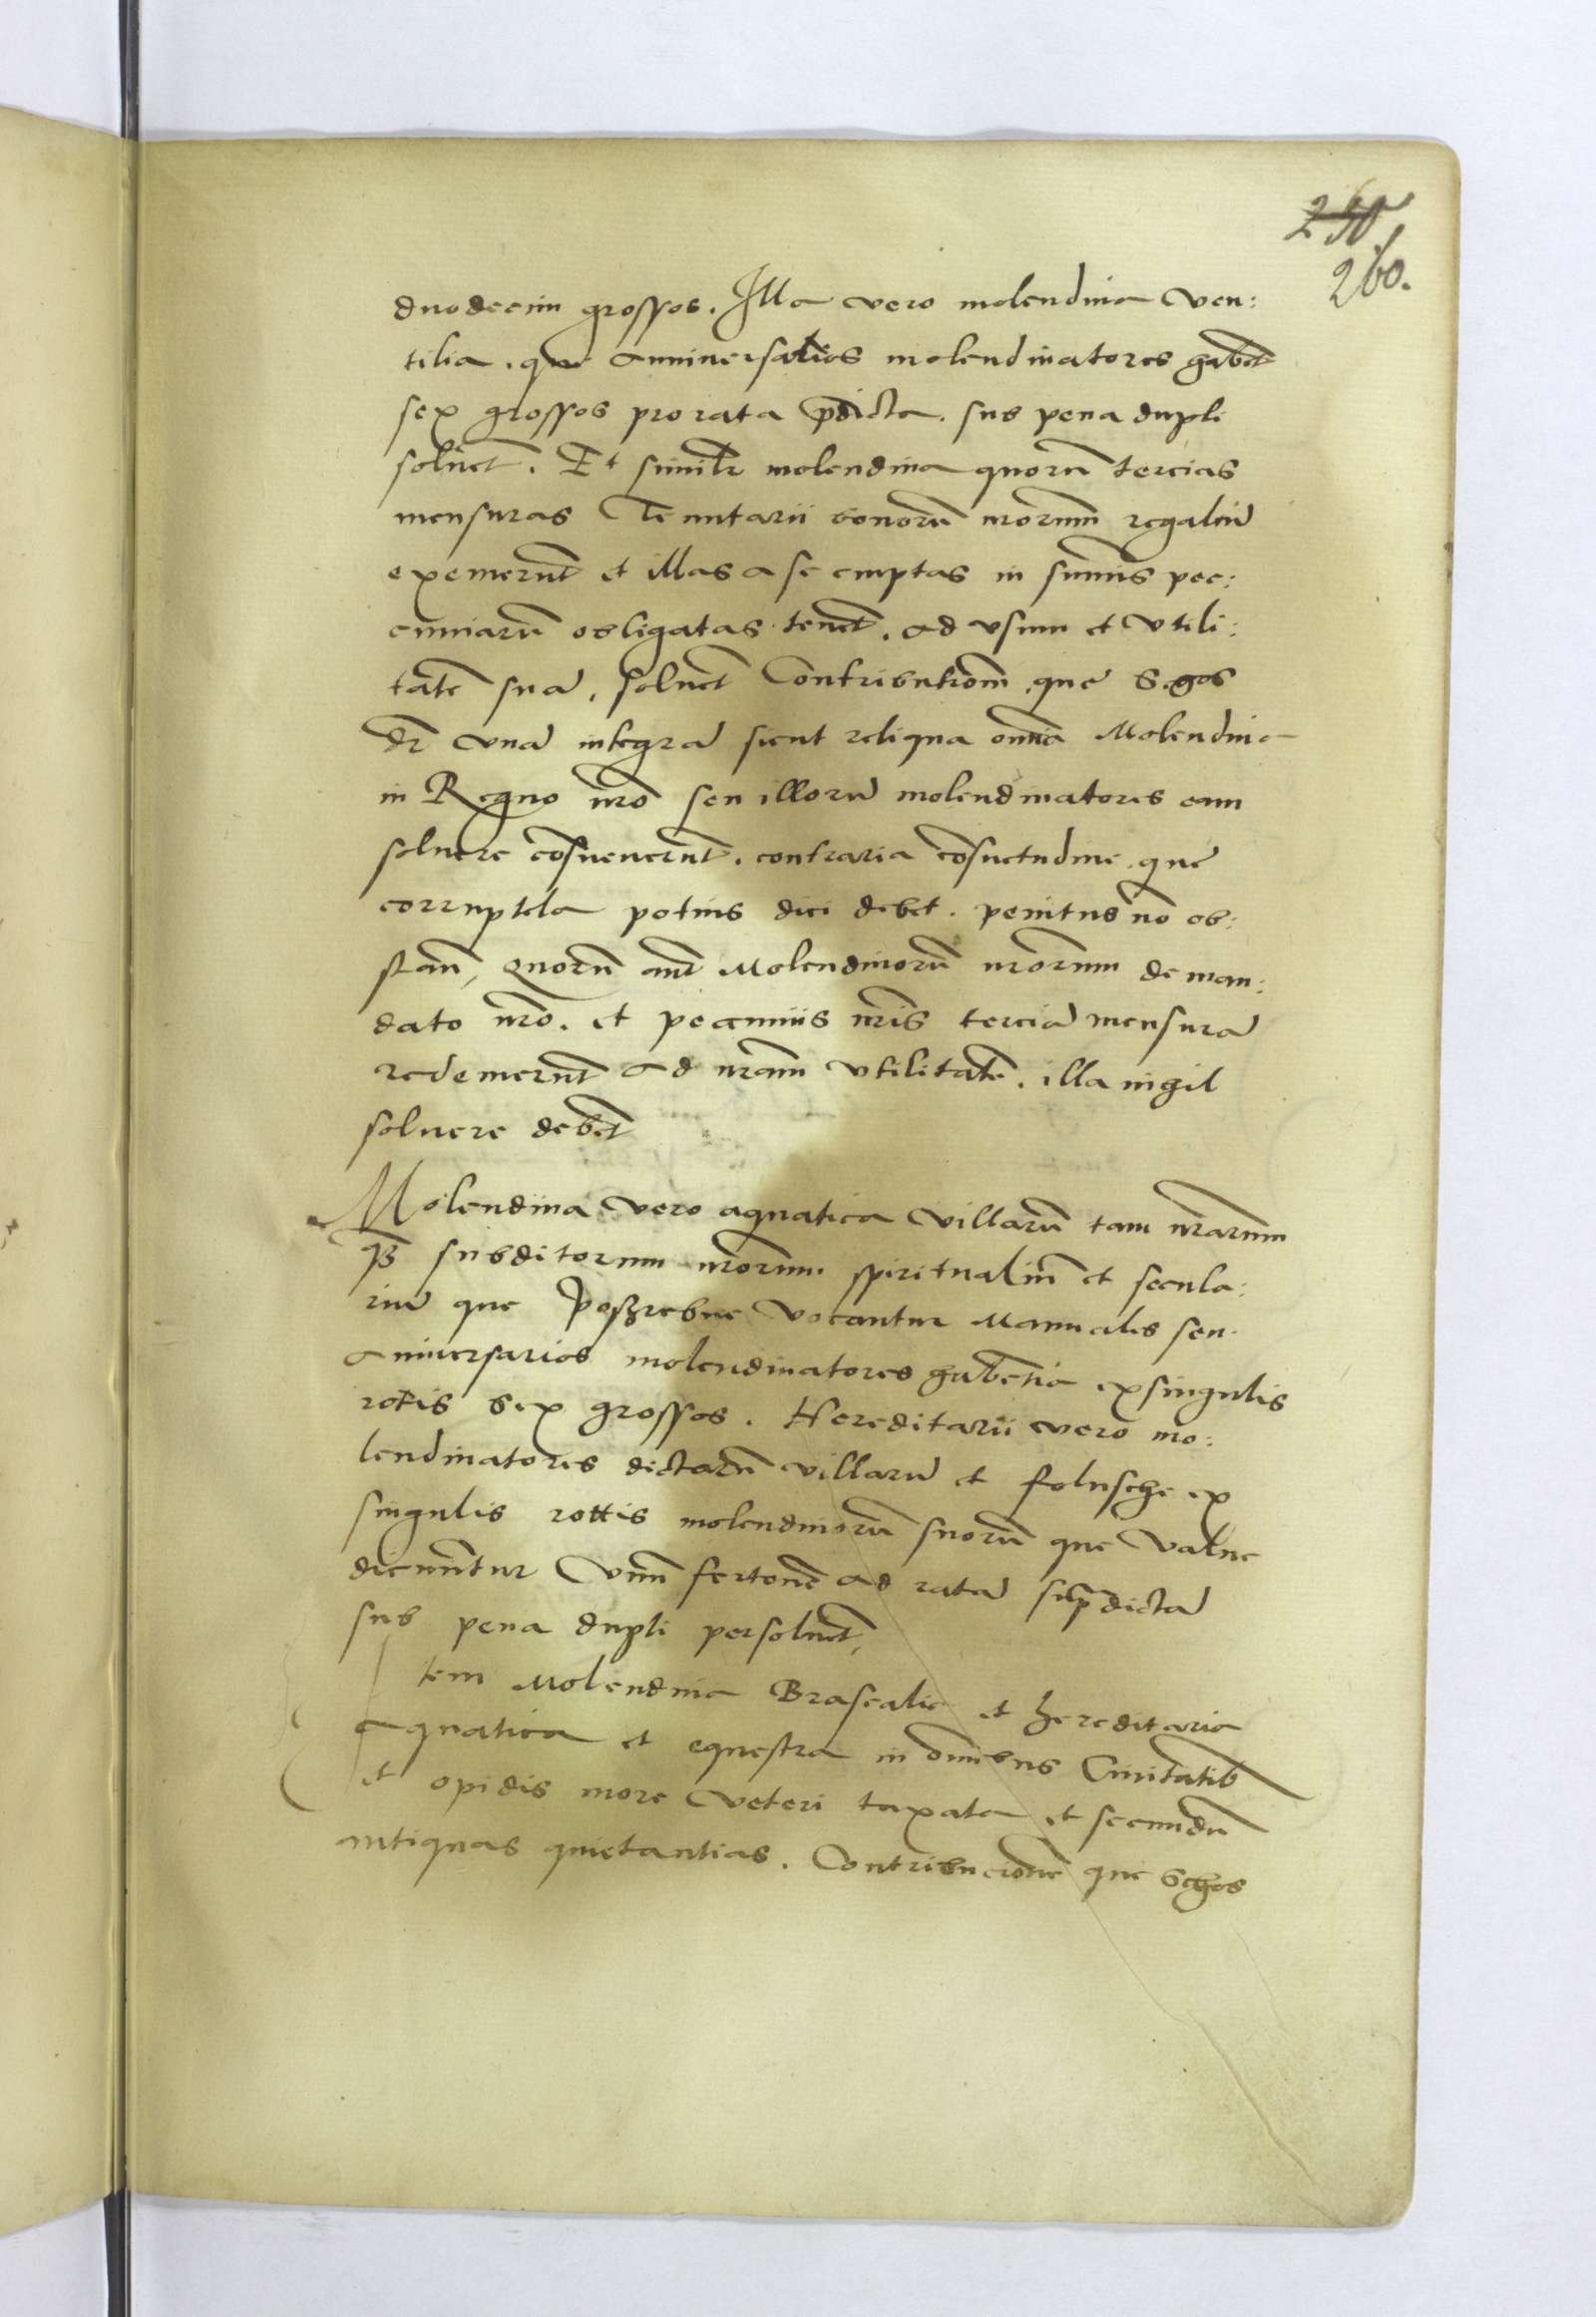 250
260.
duodecim grossos. Illa vero molendina ven:
tilia. que anniversarios molendinatores habet
sex grossos pro rata pdicta. sub pena dupli
soluet. Et similr molendina quoru tercias
mensuras Tenutarii bonoru nrorum regaliu
exemerut et illas a se emptas in sumis pec:
cuniaru obligatas tenet. ad vsum et vtili:
tate sua, soluet Contributiom que Schos
dr vna integra sicut reliqua omia Molendina
in Regno nro seu illoru molendinatores eam
soluere cosueuerut. contraria cosuetudine que
corruptela potius dici debet. penitus no ob:
stan, quoru aut Molendinoru nrorum de man:
dato nro. et pecuniis nris tercia mensura
redemerut ad nram vtilitate. illa nihil
soluere debet
Molendina vero aquatica villaru tam nrarum
q3 subditorum nrorum spiritualiu et secula:
riu que Poszrebne vocantur Manuales seu
aniversarios molendinatores habetia ex singulis
rotis sex grossos. Hereditarii vero mo:
lendinatores dictaru villaru et folusche ex
singulis rottis molendinoru suoru que Valne
dicuntur Vnu fertone ad rata supdicta
sub pena dupli persoluet,
Item Molendina Brasealia et hereditaria
aquatica et equestra in omibus Ciuitatib
et opidis more veteri taxata et secundu
antiquas quietantias. Contribucione que Schos